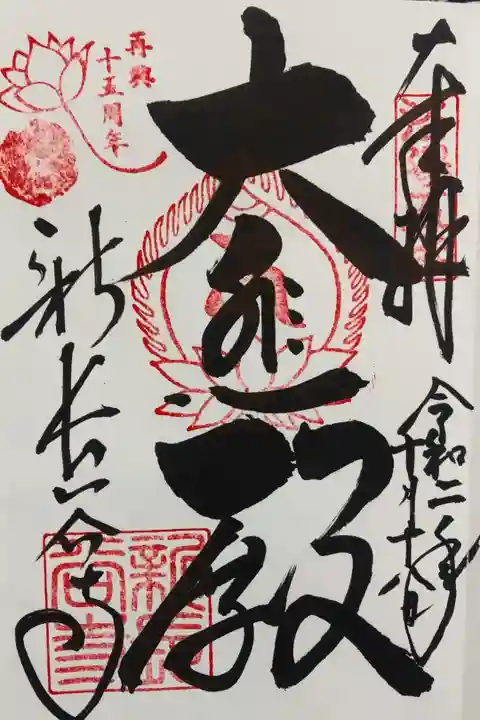 奉拝
令和二年
十月十八日
大悲殿
再興
十五周年
新長谷寺